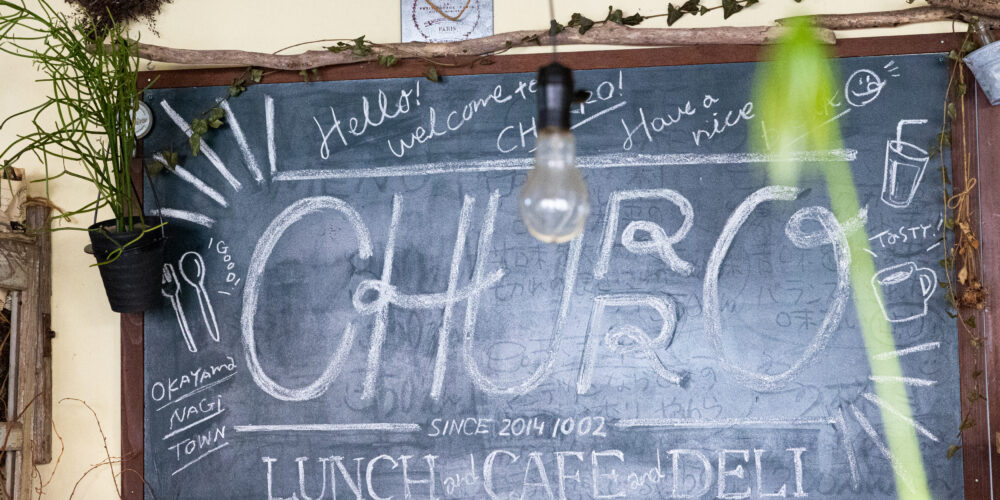 PARIS
Hello!
welcome to
CHURRO!
Have a
nice
GOOD!
CHURRO
TASTY!
OKAYAMA
NAGI
TOWN
SINCE 2014 1002
LUNCH and CAFE and DELI